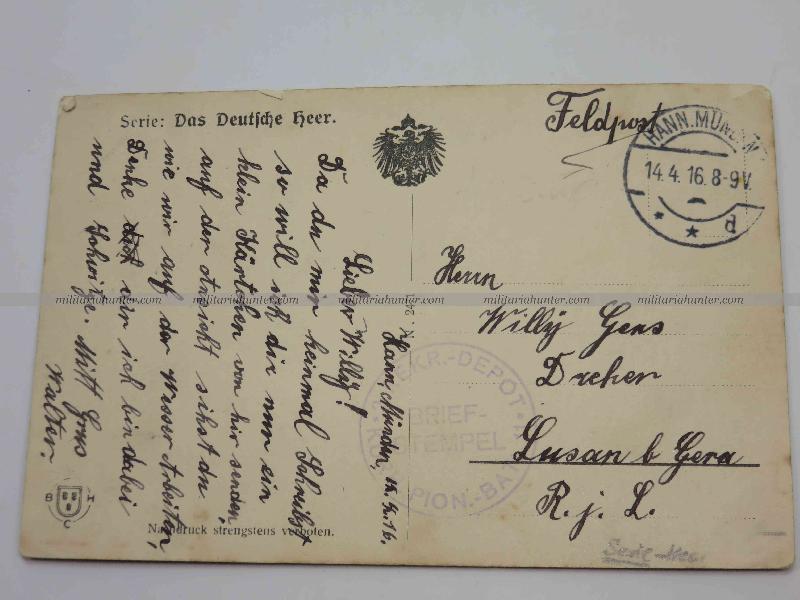 Serie: Das Deutsche Heer.
Feldpost
HANN. MÜNDEN
14.4.16.8-9V.
d
Hann. Münden,
Lieber Willÿ!
Da du mir keinmal Schreibst
so will ich dir nur ein
klein Kärtchen von hir senden,
auf der ansicht sihst du
wie wir auf der Wesser Arbeiten,
Denke dir ich bin dabei
und Schwitze. Mitt Grus
Walter.
Herrn
Willÿ Gens
Dreher
Lusan b Gera
R. j. L.
EKR.-DEPOT
BRIEF-
STEMPEL
PION.-BA
Nachdruck strengstens verboten.
B I
C
militariahunter.com
militariahunter.com
militariahunter.com
militariahunter.com
militariahunter.com